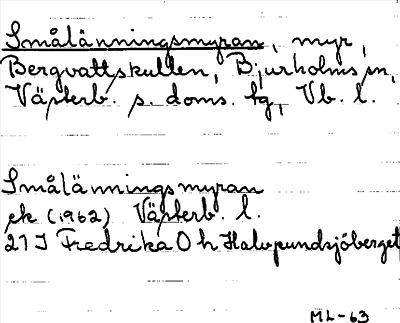 Smålänningsmyran, myr,
Bergvattskullen, Bjurholms sn,
Västerb. s. doms. tg, Vb. l.
Smålänningsmyran
ek (1962) Västerb. l.
21 I Fredrika O h Halvpundsjöberget
ML-63